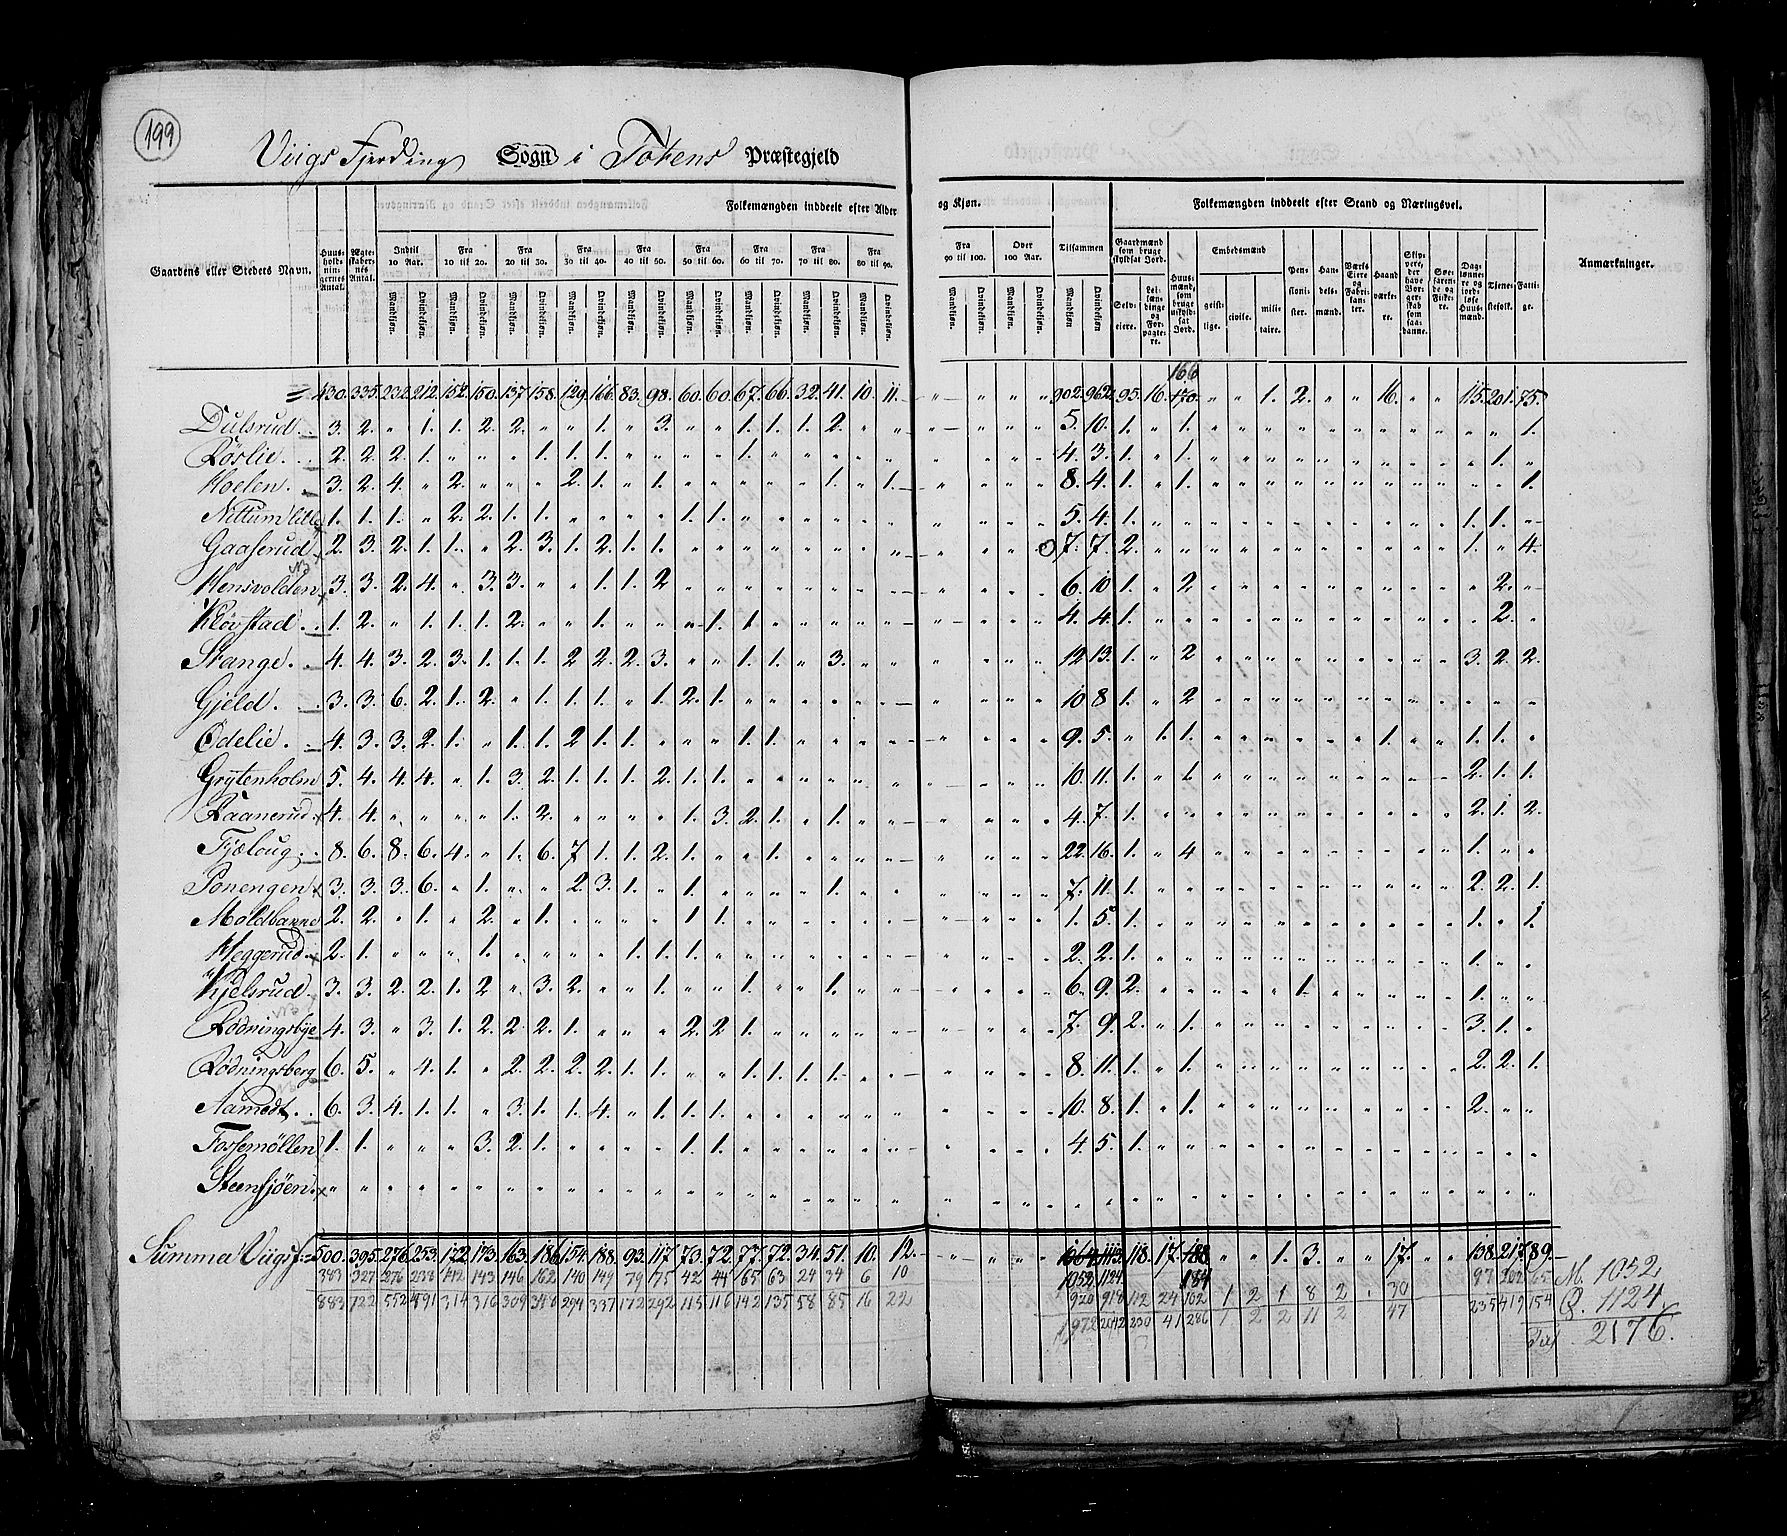 199
Viigs Fjerding Sogn i Totens Præstegjeld
Folkemængden inddeelt efter Alder og Kjøn. Folkemængden inddeelt efter Stand og Næringsvei.
Gaardens eller Stedets Navn. Huusholdningernes Antal. Ægteskabernes Antal. Indtil 10 Aar. Fra 10 til 20. Fra 20 til 30. Fra 30 til 40. Fra 40 til 50. Fra 50 til 60. Fra 60 til 70. Fra 70 til 80. Fra 80 til 90. Fra 90 til 100. Over 100 Aar. Tilsammen Gaardmænd som bruge skyldsat Jord. Huusmænd, som bruge uskyldsat Jord. Embedsmænd Pensionister. Handelsmænd. Værks-Eiere og Fabrikanter. Haandværkere. Skippere, der have Borgerskab som saadanne. Søefarende og Fiskere. Daglønnere og jordløse Huusmænd. Tjenestefolk. Fattige. Anmærkninger.
Mandkjøn. Qvindekjøn. Mandkjøn. Qvindekjøn. Mandkjøn. Qvindekjøn. Mandkjøn. Qvindekjøn. Mandkjøn. Qvindekjøn. Mandkjøn. Qvindekjøn. Mandkjøn. Qvindekjøn. Mandkjøn. Qvindekjøn. Mandkjøn. Qvindekjøn. Mandkjøn. Qvindekjøn. Mandkjøn. Qvindekjøn. Mandkjøn. Qvindekjøn. Selveiere. Leilændinge og Forpagtere. geistlige. civile. militaire.
166
430. 335. 232. 212. 152. 150. 137. 158. 129. 166. 83. 98. 60. 60. 67. 66. 32. 41. 10. 11. " " " " 902. 962. 95. 16. 170. " " 1. 2. " " 16. " " 115. 201. 75.
Dulsrud. 3. 2. " 1. 1. 2. 2. " " 1. " 3. " " 1. 1. 1. 2. " " " " " " 5. 10. 1. " 1. " " " " " " " " " " " 1.
Røslie. 2. 2. 2. 1. " " " 1. 1. 1. " " " " 1. " " " " " " " " " 4. 3. 1. " 1. " " " " " " " " " " 1. "
Hoelen. 3. 2. 4. " 2. " " " 2. 1. " 1. " " " " " 1. " 1. " " " " 8. 4. 1. " 1. " " " " " " " " " " " 1.
Nettum lille 1. 1. 1. " 2. 2. 1. 1. " " " " 1. 1. " " " " " " " " " " 5. 4. 1. " " " " " " " " " " " 1. 1. "
Gaaserud 2. 3. 2. 1. 1. " 2. 3. 1. 2. 1. 1. " " " " " " " " " " " " 7. 7. 2. " " " " " " " " " " " 1. " 4.
Hensvolden 3. 3. 2. 4. " 3. 3. " " 1. 1. 2 " " " " " " " " " " " " 6. 10 1. " 2 " " " " " " " " " " 2. "
Kløvstad. 1. 2. " 1. 1. 1. 2. " " 1. " " " 1. 1. " " " " " " " " " 4. 4. 1. " " " " " " " " " " " " 2. "
Stange. 4. 4. 3. 2. 3. 1. 1. 1. 2 2. 2. 3. " " 1. 1. " 3. " " " " " " 12 13. 1. " 2 " " " " " " " " " 3. 2. 2.
Gjeld. 3. 3. 6. 2. 1. 2. " 1. 1. 1. " 1. 2. 1. " " " " " " " " " " 10 8 1. " 2 " " " " " " " " " " " "
Ødelie. 4. 3. 3. 2. 1. " 1. 1. 2 1. 1. " " " 1. 1. " " " " " " " " 9. 5. " 1. 1. " " " " " " 1. " " 1. 1. "
Grytenholm 5. 4. 4. 4. " 1. 3. 2. 1. 1. 1. 2. 1. 1. " " " " " " " " " " 10. 11. 1. " 1. " " " " " " " " " 2. 1. 1.
Raanerud 4. 4. " " " " 1. 2. " " " " 1. 3. 2. 1. " 1. " " " " " " 4. 7. 1. " " " " " " " " " " " 2. 1. 2.
Fjeloug. 8. 6. 8. 6. 4. " 1. 6. 7 1. 1. 2. 1. " " 1. " " " " " " " " 22. 16. 1. " 4 " " " " " " " " " 1. " "
Ponengen 3. 3. 3. 6. " 1. " " 2. 3. 1. " 1. " " " " 1. " " " " " " 7. 11. 1. " " " " " " " " " " " 2. 2. 1
Moldbanne 2. 2. " 1. " 2. " 1. " " " " 1. 1. " " " " " " " " " " 1. 5. 1. " " " " " " " " " " " 1. " 1.
Heggerud. 2. 1. " " " 1. " " " " 1. 1. 1. " " " " " " " " " " " 2. 2. 1. " " " " " " " " " " " 1. " "
Kjelsrud. 3. 3. 2. 2. 1. 2 " 3. 2. " " 1. " " 1. " " 1. " " " " " " 6. 9. 2. " " " " " 1. " " " " " 1. " "
Rødningsbye 4. 3. " 3. 1. 2. 2. 2. 1. " " " 2. 2 1. " " " " " " " " " 7. 9. 2. " 1. " " " " " " " " " 3. 1. "
Rødningsberg 6. 5. " 4. 1. " 2. 2. 2. 2. 1. 1. " " 1. 1. 1. 1. " " " " " " 8. 11. 1. " 1. " " " " " " " " " 2. 2. 1.
Aamodt. 6. 3. 4. 1. 1. " 3. 1. 1. 4. " 1. 1. 1. " " " " " " " " " " 10. 8. 1. " 1. " " " " " " " " " 2. " "
Fossemøllen 1. 1. " " " 3. 2. 1. " " " " 1. 1. " " " " " " " " " " 4. 5. 1. " " " " " " " " " " " " " "
Steensjøen. " " " " " " " " " " " " " " " " " " " " " " " " " " " " " " " " " " " " " " " " "
Summa Viigsf: 500. 395. 276. 253. 172. 173. 163. 186. 154. 188. 93. 117. 73. 72. 77. 72. 34. 51. 10. 12. " " " " 1064. 1113. 118. 17. 188 " " 1. 3. " " 17. " " 138. 217. 89.
383 327 276 238 142 143 146 162 140 149 79 175 42 44 65 63 24 34 6 10 1052. 1124. 184 97 202 65 M. 1052
883 722 552 491 314 316 309 348 294 337 172 292 115 116 142 135 58 85 16 22 920 918 112 24 102 1 2 1 8 2 . 30 235 419 154 Q. 1124.
1972 2042 230 41 286 1 2 2 11 2 47 Til 2176.